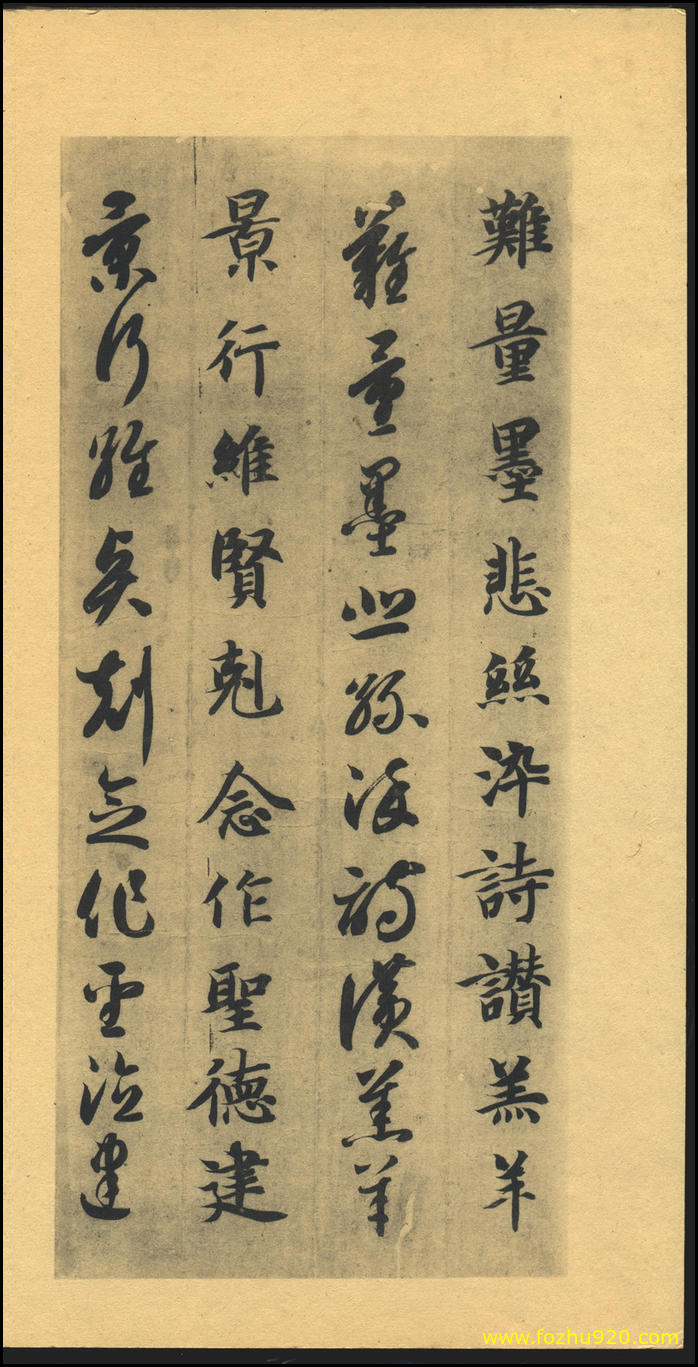 難量墨悲絲染詩讃羔羊
難量墨悲絲染詩讃羔羊
景行維賢剋念作聖徳建
景行維賢剋念作聖徳建
www.fozhu920.com